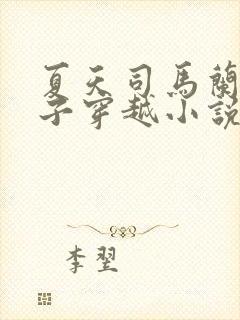 夏天司馬蘭
子穿越小說
李翌